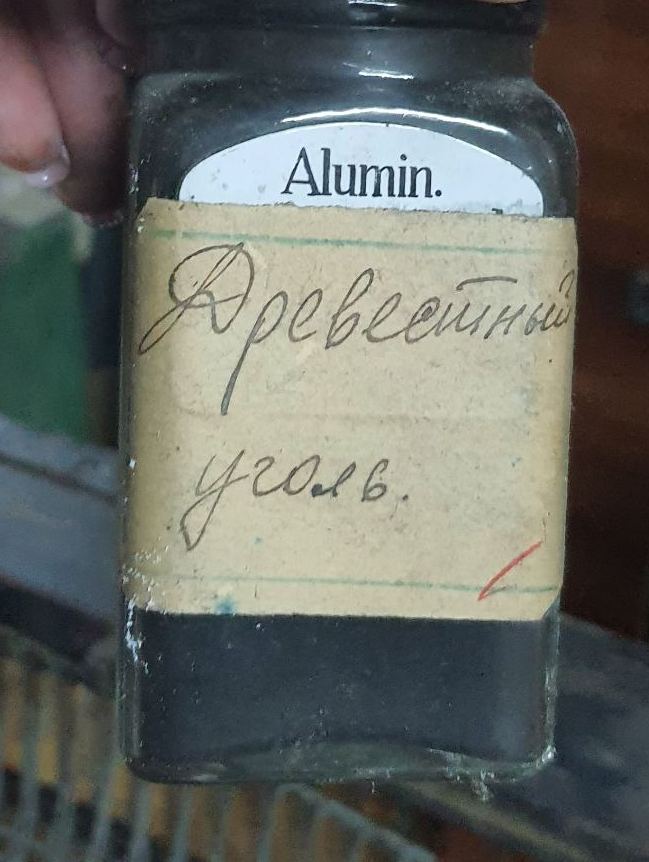 Alumin.
Древестный
уголь.